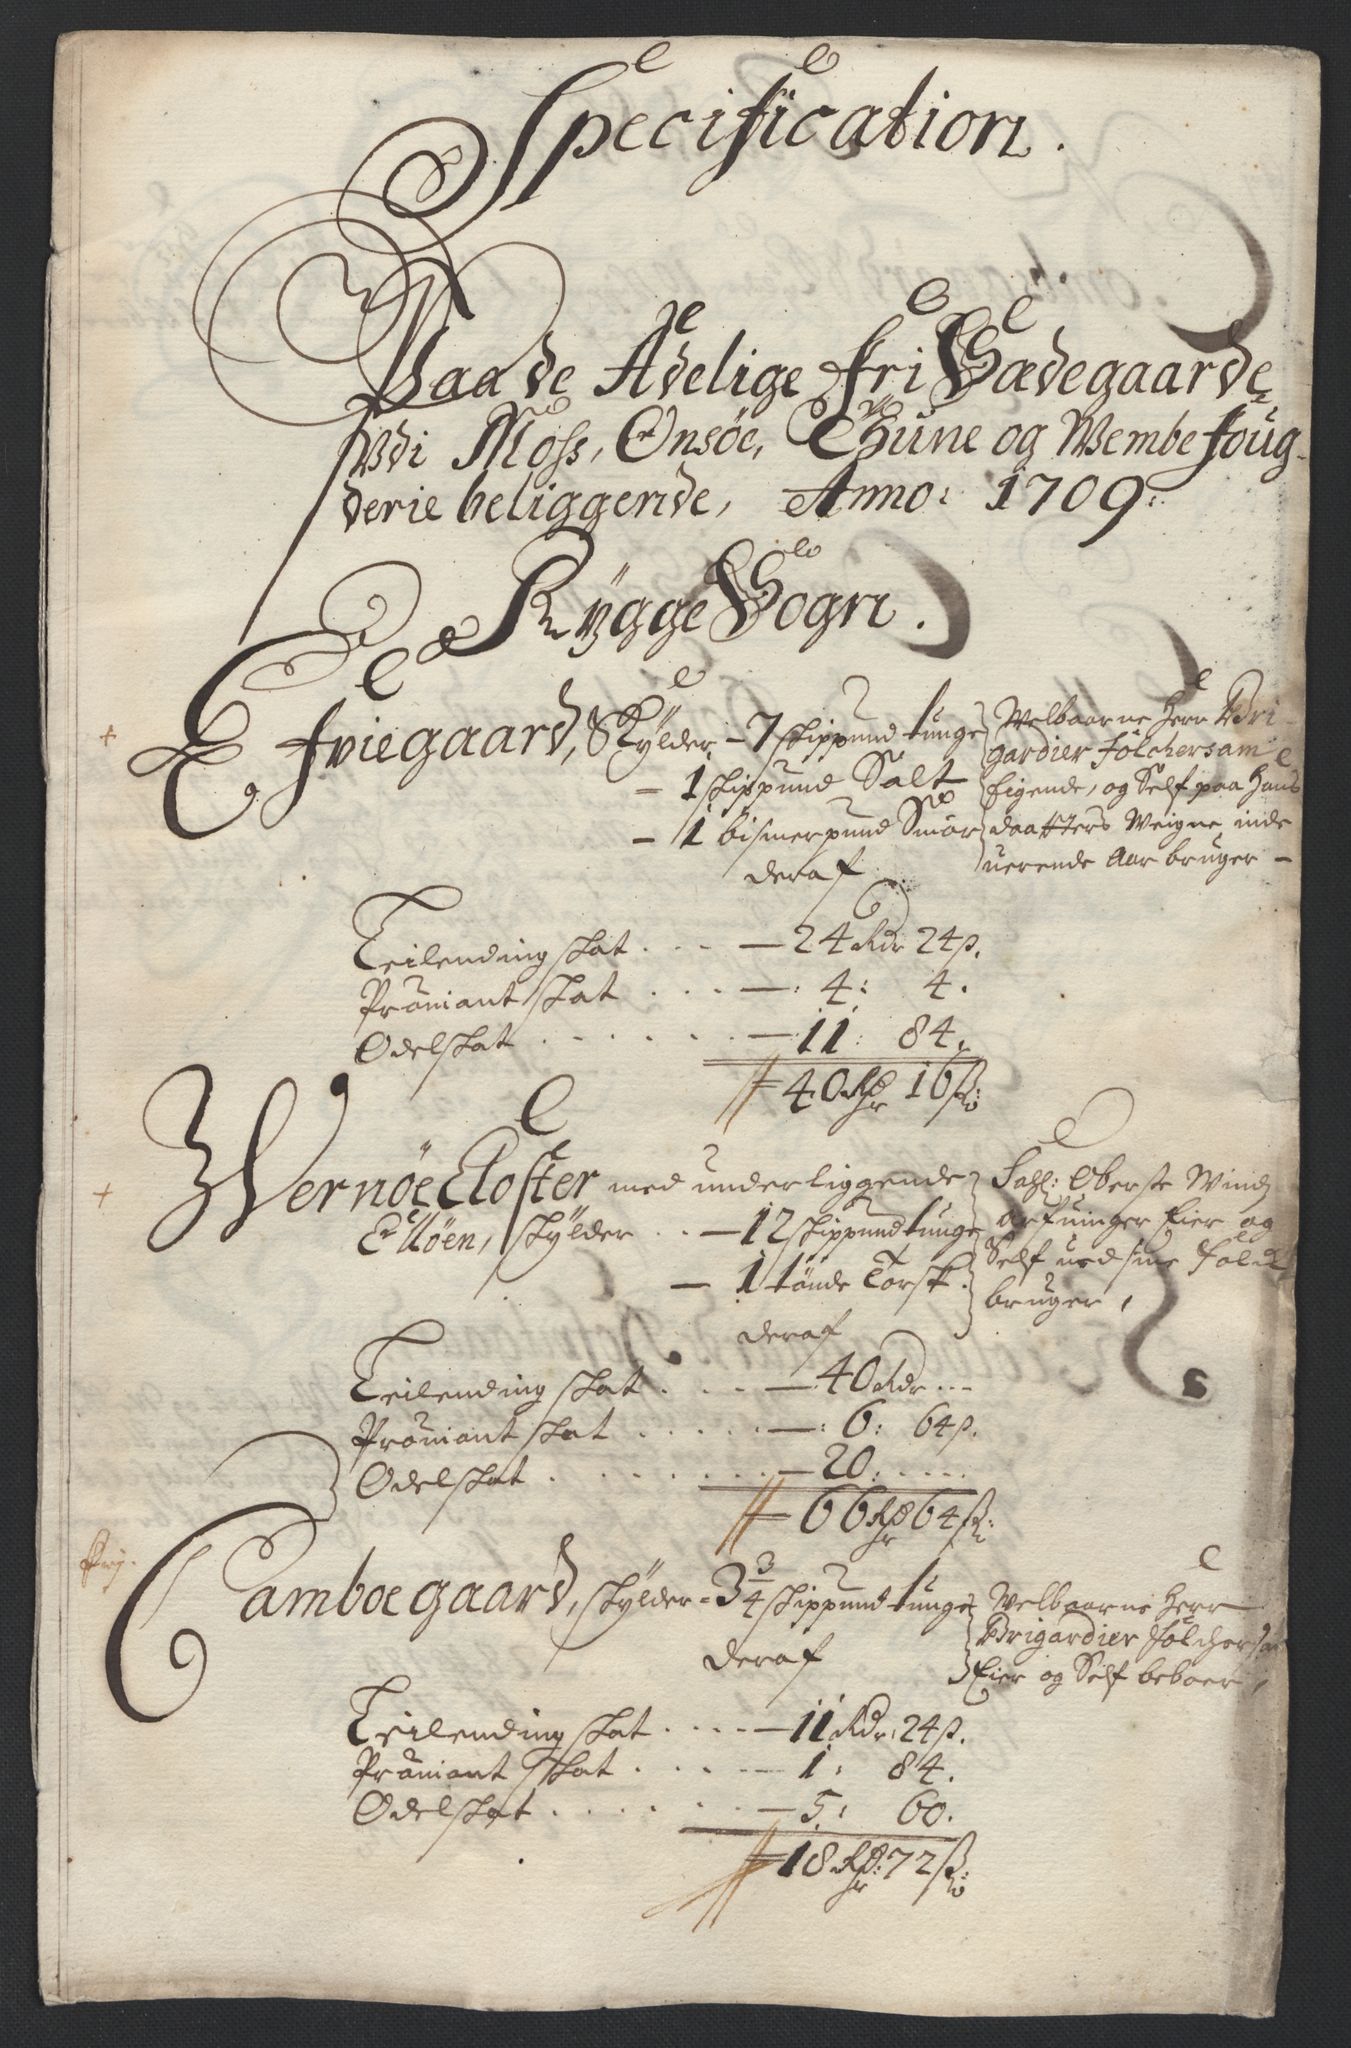 Specification.
Paa de Adelige fri Sædegaarde
Udi Moss, Onsøe, Thune og Wembe foug-
derie beliggende, Anno: 1709:
Rygge Sogn.
+ Efviegaard, Skylder - 7 skippund tunge
- 1 skippund Salt
- 1 bismerpund Smør
Welbaarne Herr Bri-
gardier Fölchersam
Eigende, og Self paa Hans
daatters Weigne, inde
uerende Aar bruger -
deraf
Leilending skat . . . . - 24 Rdr 24 s.
Prouiant skat . . . . - : 4: 4.
Odelskat . . . . . . - 11: 84.
40 Rdr 16 s:
+ Wernøe Closter med underliggende
Elløen, skylder . . - 12 skippund tunge
- 1 tønde Torsk.
Sahl: Oberste Wind
Arfuinger Eier og
Self ued sine Folck
bruger,
deraf
Leilending skat . . . . - 40 Rdr ---
Prouiant skat . . . . . - : 6: 64 s.
Odelskat . . . . . . . - 20: . . . .
66 Rdr 64 s:
Camboegaard, skylder - 3 3/4 skippund tunge
Welbaarne Herr
Brigardier Fölchersam
Eier og Self beboer,
deraf
Leilending skat . . . . - 11 Rdr: 24 s.
Prouiant skat . . . . . - 1: 84.
Odelskat . . . . . . - 5: 60.
18 Rdr: 72 s: